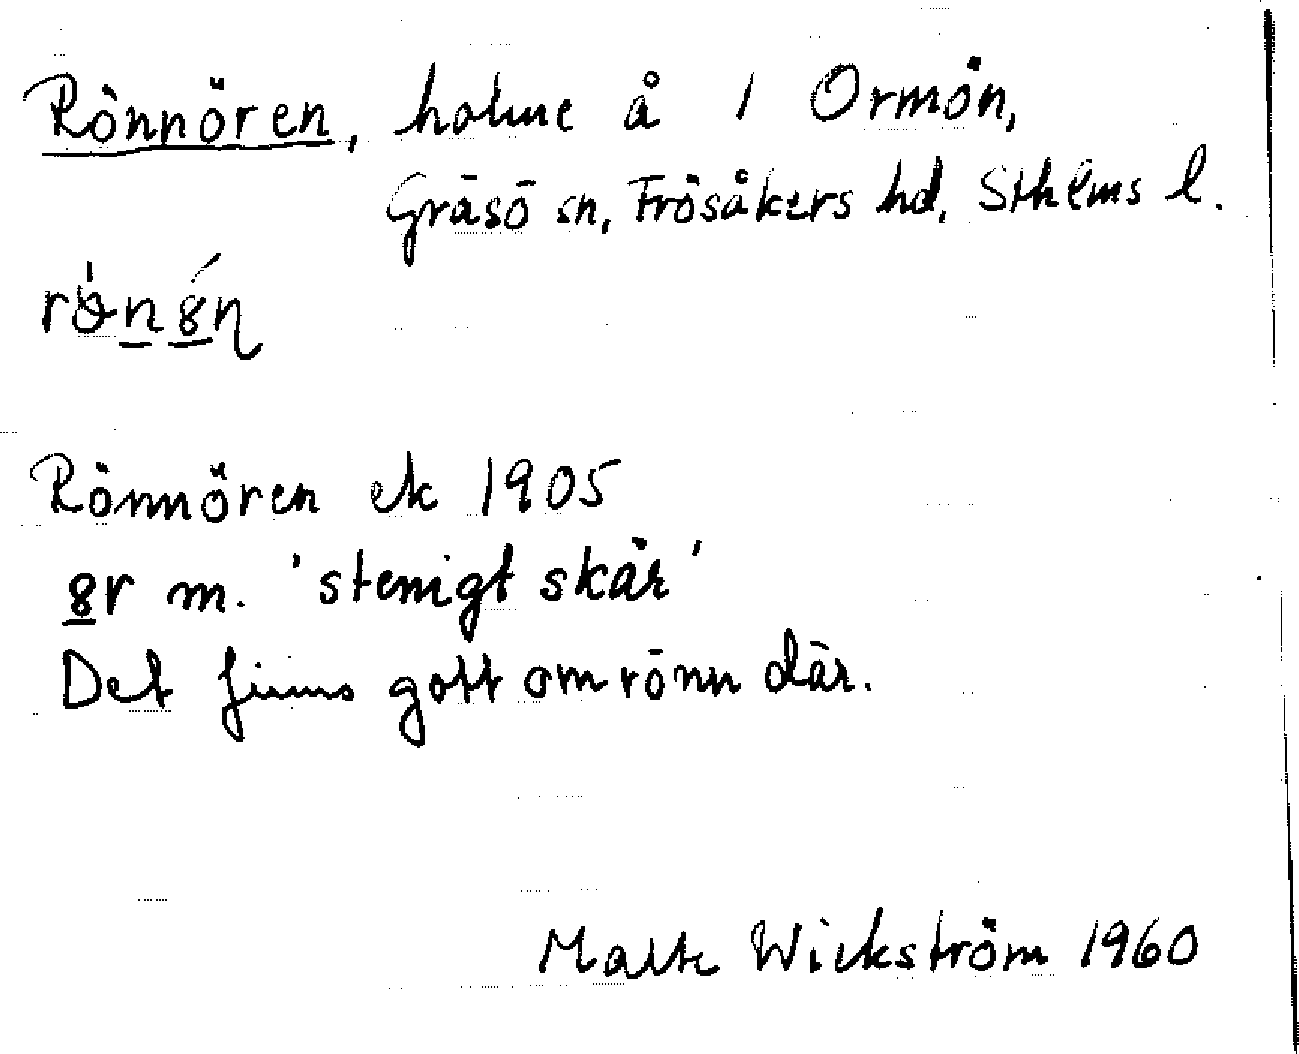 Rönnören, holme å 1 Ormön,
Gräsö sn, Frösåkers hd, Sthlms l.
Rönnören ek 1905
m. 'stenigt skär'
Det finns gott om rönn där.
Malte Wickström 1960